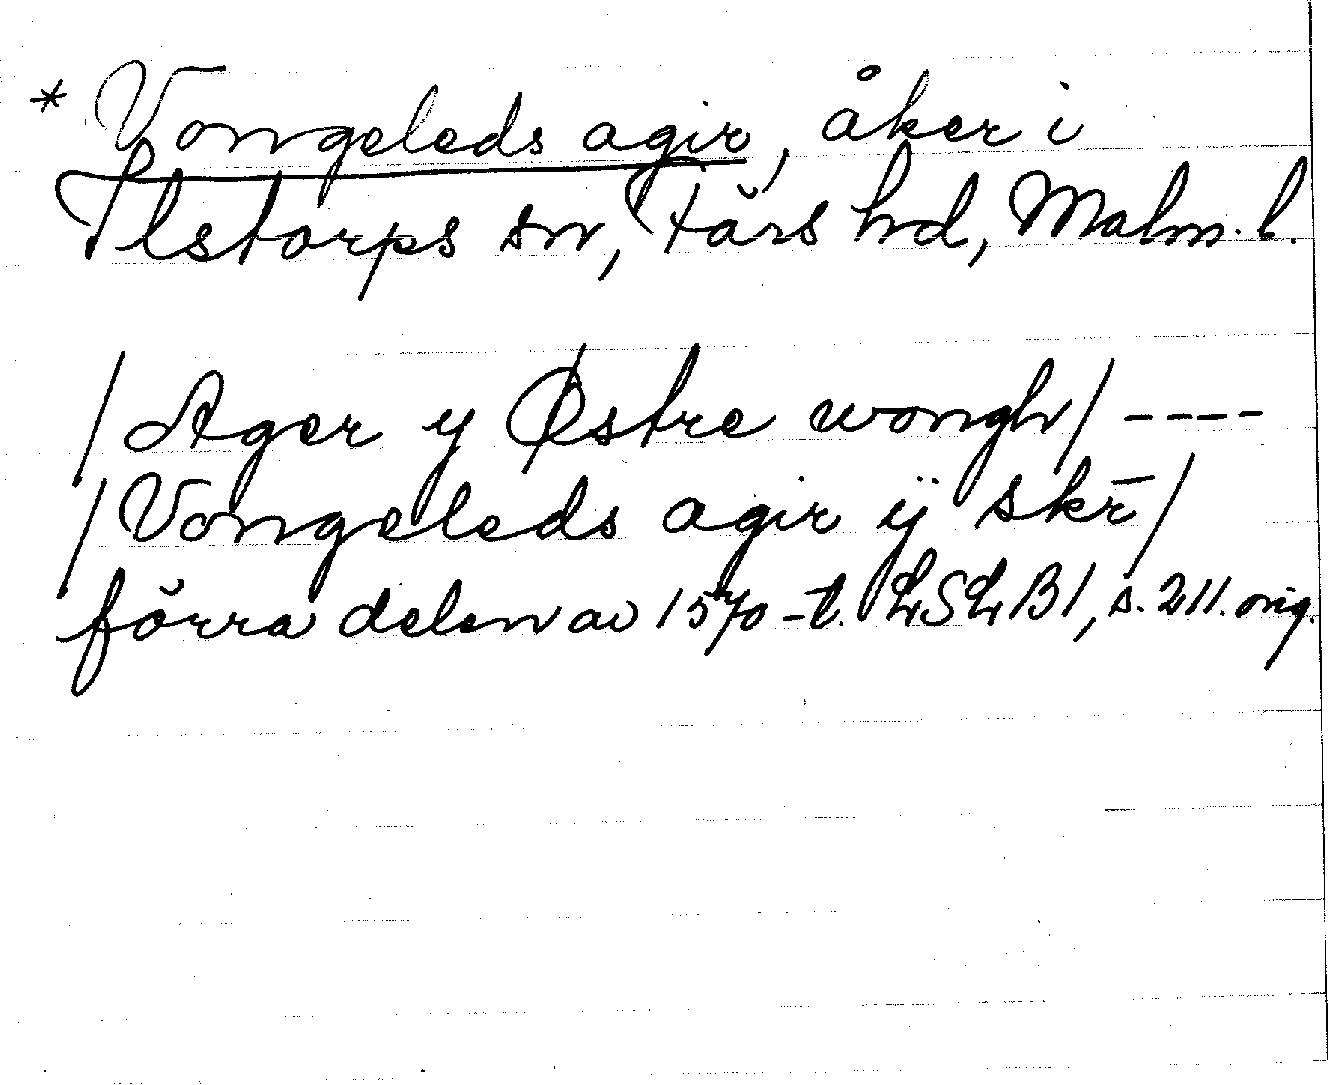 * Vongeleds agir, åker i
Ilstorps sn, Färs hd, Malm. l.
/Ager y Østre wongh/ ----
/Vongeleds agir ij skr̄/
förra delen av 1570-t. LSLB1, s. 211. orig.